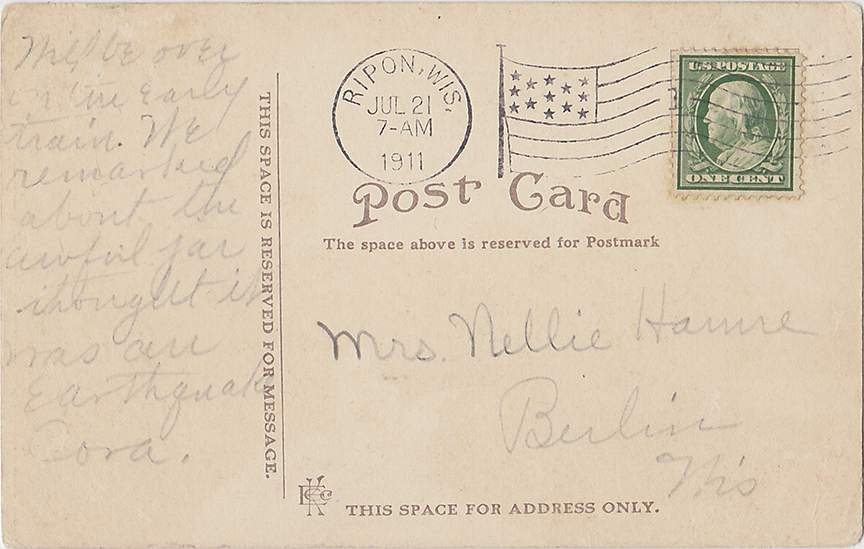 Will be over
on the early
train. We
remarked
about the
awful jar
thought it
was an
Earthquake
Cora.
THIS SPACE IS RESERVED FOR MESSAGE.
RIPON, WIS.
JUL 21
7-AM
1911
U.S. POSTAGE
ONE CENT
Post Card
The space above is reserved for Postmark
Mrs. Nellie Hamre
Berlin
Wis
THIS SPACE FOR ADDRESS ONLY.